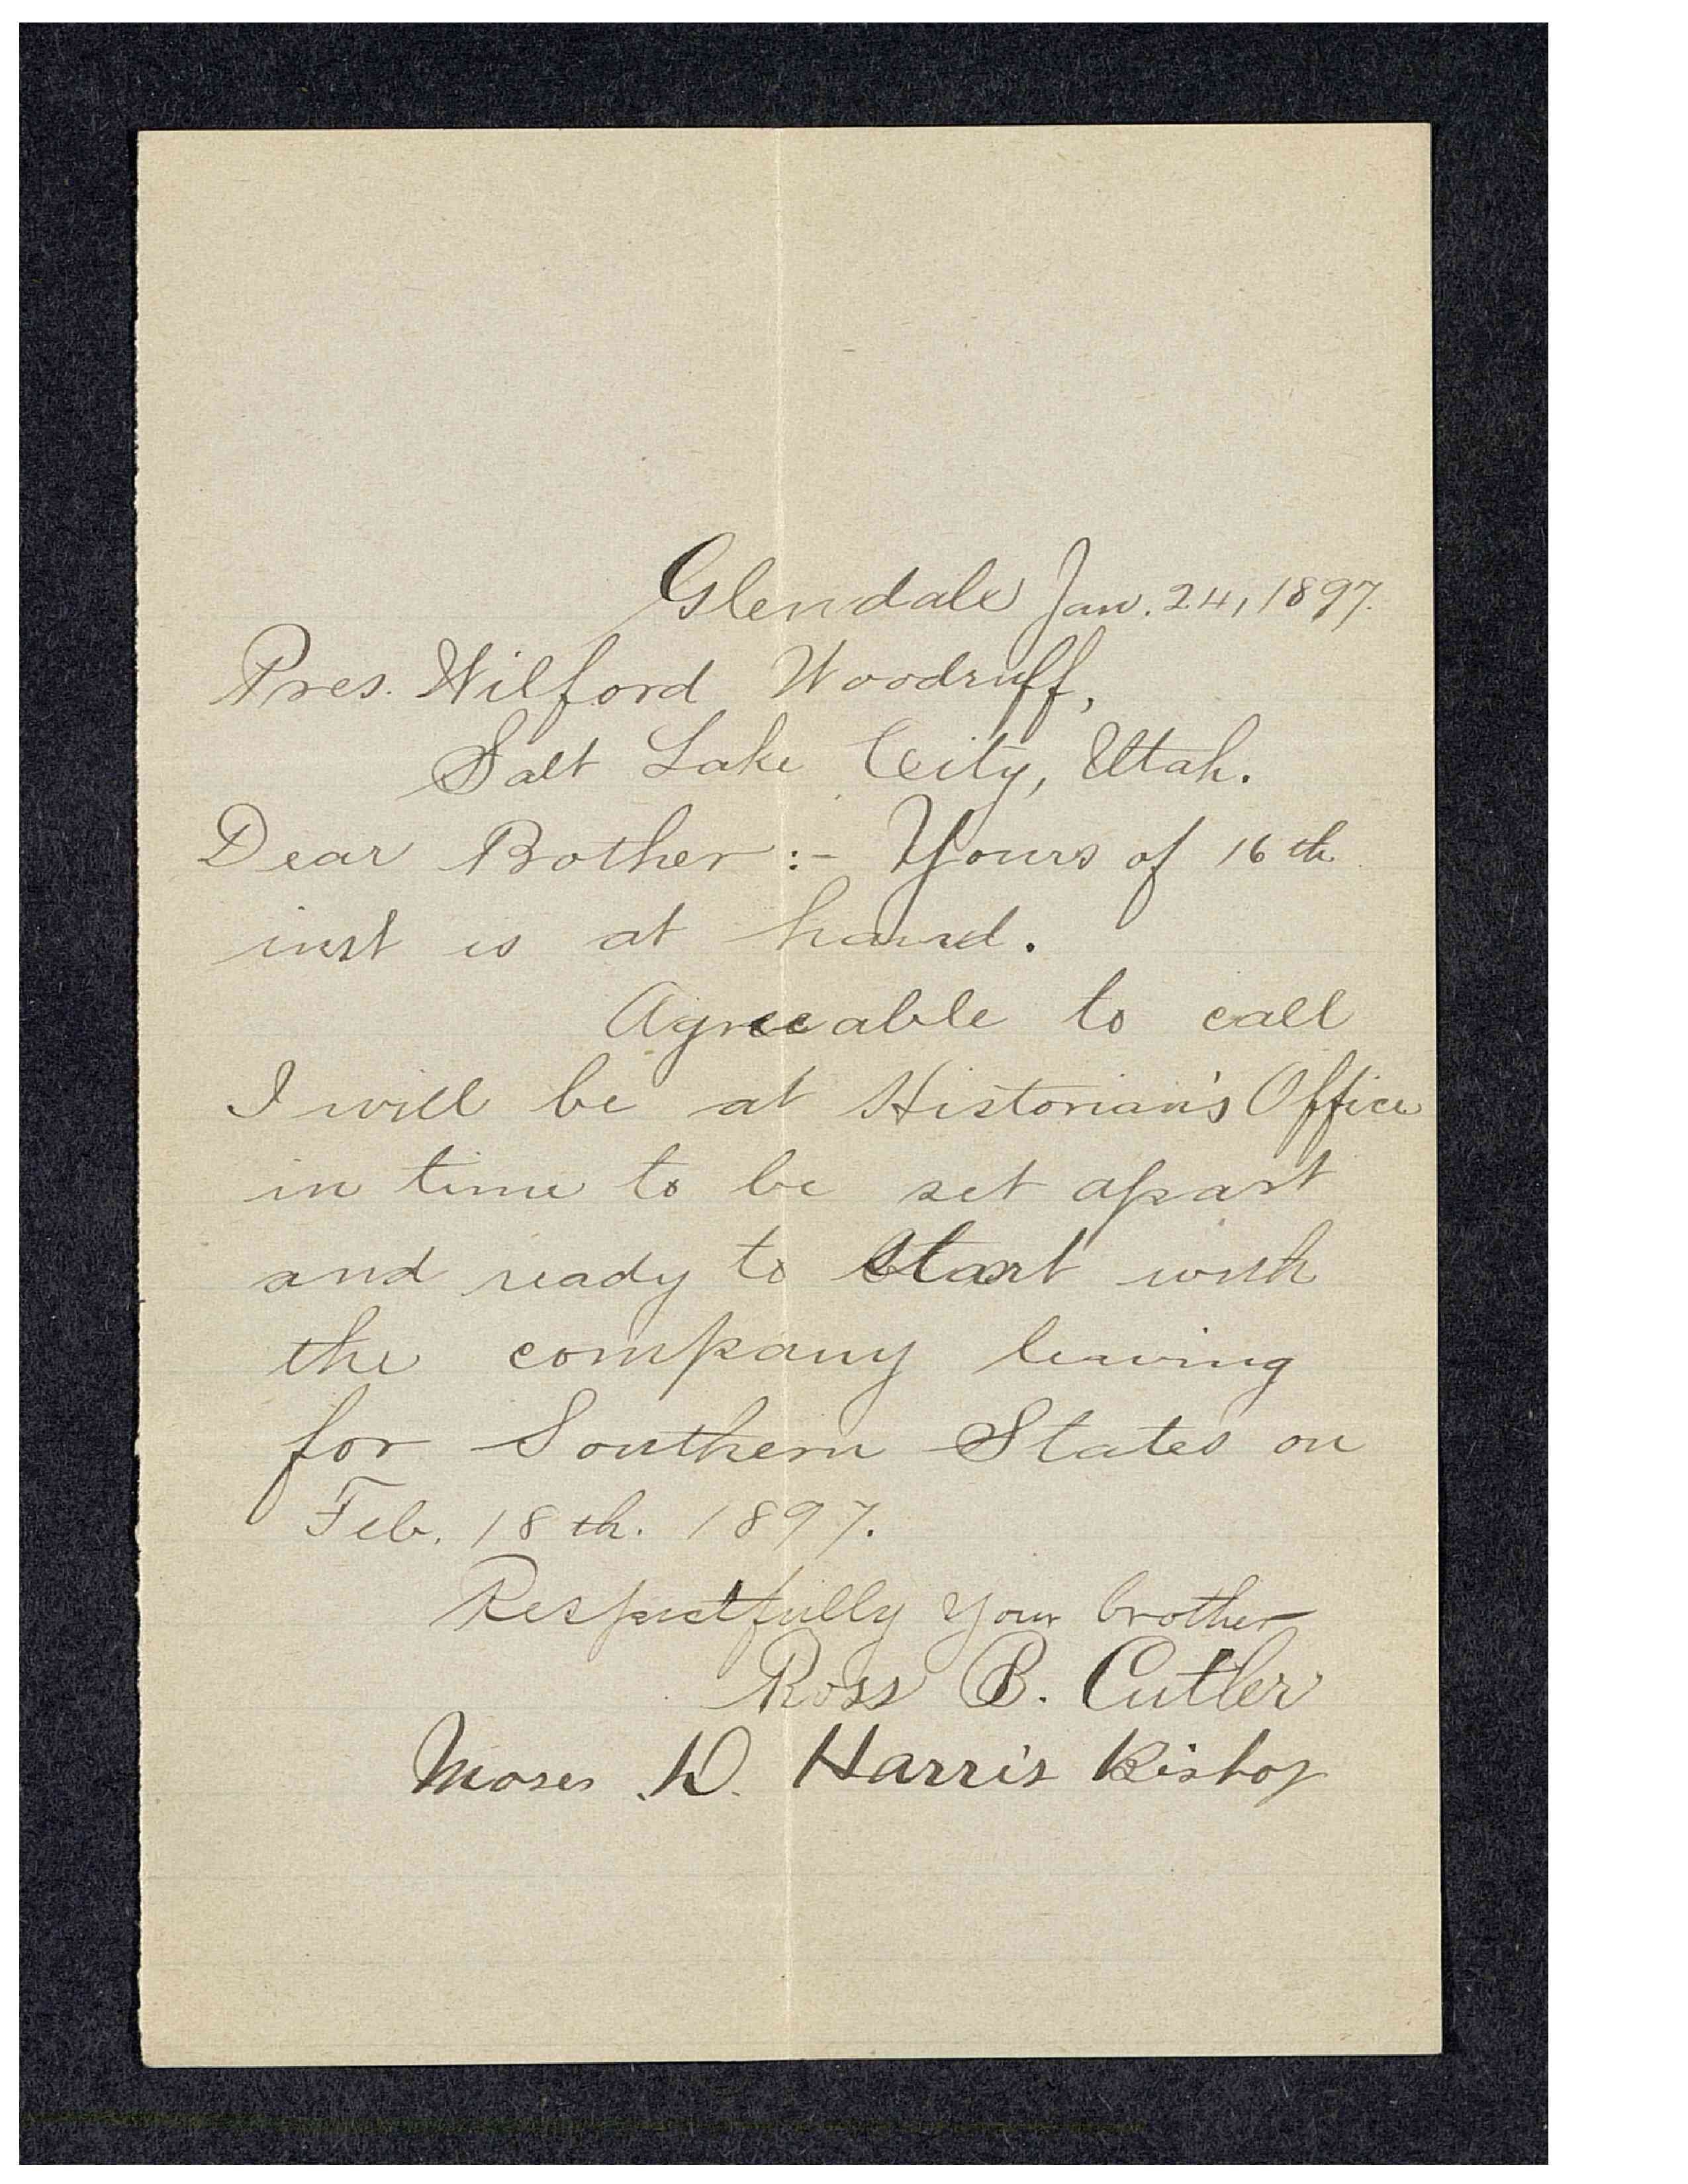 Glendale Jan. 24, 1897.
Pres. Wilford Woodruff,
Salt Lake City, Utah.
Dear Bother :- Yours of 16th
inst is at hand.
Agreeable to call
I will be at Historian's Office
in time to be set apart
and ready to start with
the company leaving
for Southern States on
Feb. 18th. 1897.
Respectfully your brother
Ross B. Cutler
Moses D. Harris Bishop